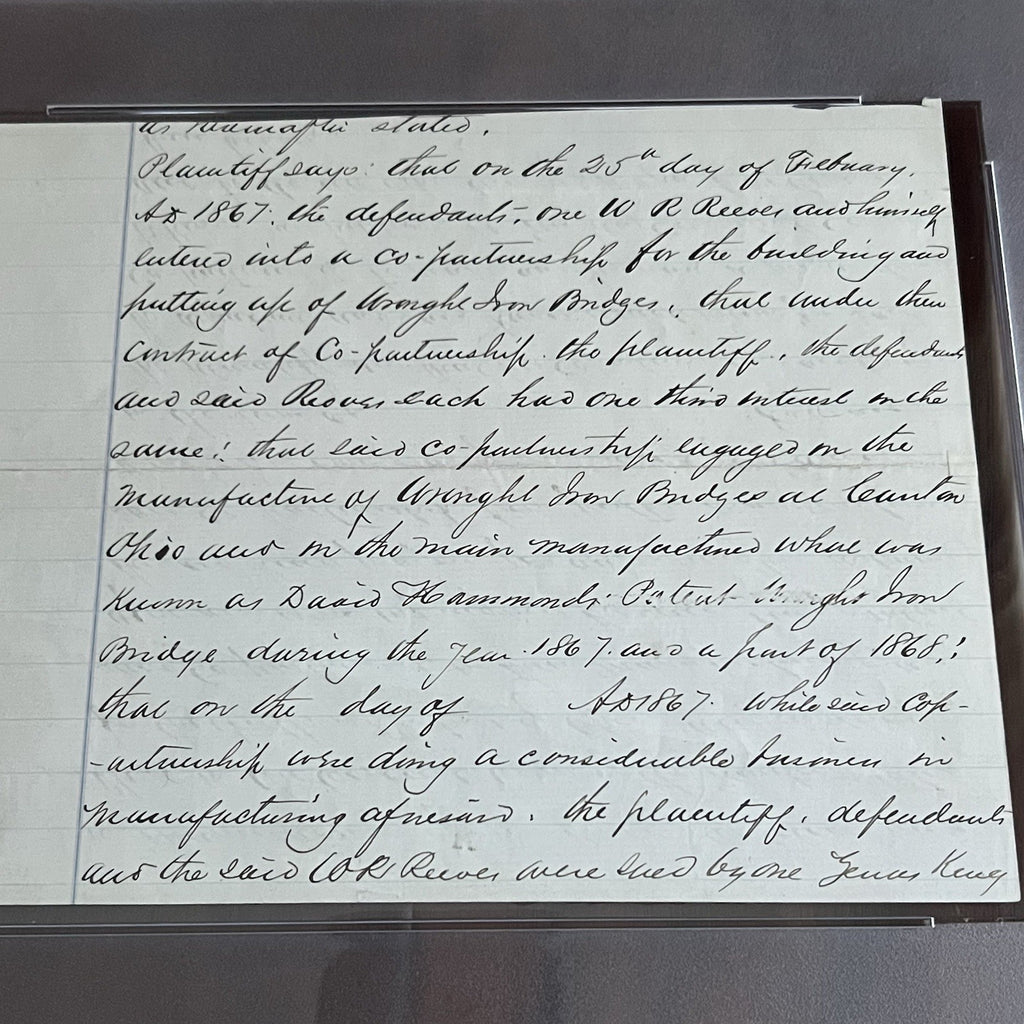 as hereinafter stated.
Plaintiff says: that on the 25th day of February,
AD 1867. the defendants, one W R Reeves and himself
entered into a co-partnership for the building and
putting up of Wrought Iron Bridges, that under their
Contract of Co-partnership the plaintiff, the defendants
and said Reeves each had one third interest in the
same: that said co-partnership engaged in the
manufacture of Wrought Iron Bridges at Canton
Ohio and in the main manufactured what was
Known as David Hammonds Patent Wrought Iron
Bridge during the Year 1867. and a part of 1868:
that on the day of AD 1867. while said Cop-
-artnership were doing a considerable business in
manufacturing aforesaid. the plaintiff, defendants
and the said W R Reeves were sued by one Zenas King